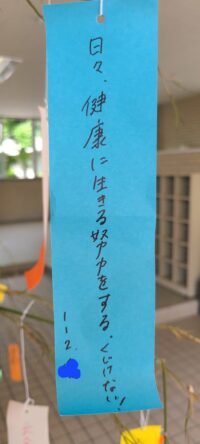 日々、健康に生きる努力をする。くじけない!
1-2.